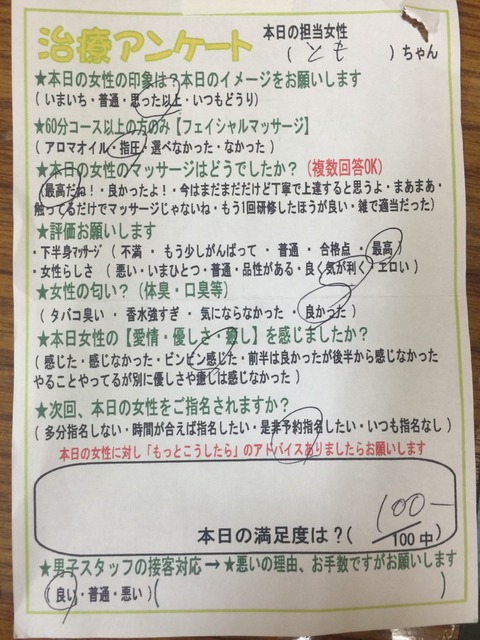 治療アンケート
本日の担当女性
(とも)ちゃん
★本日の女性の印象は?本日のイメージをお願いします
(いまいち・普通・思った以上・いつもどうり)
★60分コース以上の方のみ【フェイシャルマッサージ】
(アロマオイル・指圧・選べなかった・なかった)
★本日の女性のマッサージはどうでしたか?(複数回答OK)
(最高だね!・良かったよ!・今はまだまだだけど丁寧で上達すると思うよ・まあまあ・
触ってるだけでマッサージじゃないね・もう1回研修したほうが良い・雑で適当だった)
★評価お願いします
・下半身マッサージ(不満・もう少しがんばって・普通・合格点・最高)
・女性らしさ(悪い・いまひとつ・普通・品性がある・良く気が利く・エロい)
★女性の匂い?(体臭・口臭等)
(タバコ臭い・香水強すぎ・気にならなかった・良かった)
★本日女性の【愛情・優しさ・癒し】を感じましたか?
(感じた・感じなかった・ビンビン感じた・前半は良かったが後半から感じなかった
やることやってるが別に優しさや癒しは感じなかった)
★次回、本日の女性をご指名されますか?
(多分指名しない・時間が合えば指名したい・是非予約指名したい・いつも指名なし)
本日の女性に対し「もっとこうしたら」のアドバイスありましたらお願いします
本日の満足度は?(100/100中)
★男子スタッフの接客対応→★悪いの理由、お手数ですがお願いします
(良い・普通・悪い)( )